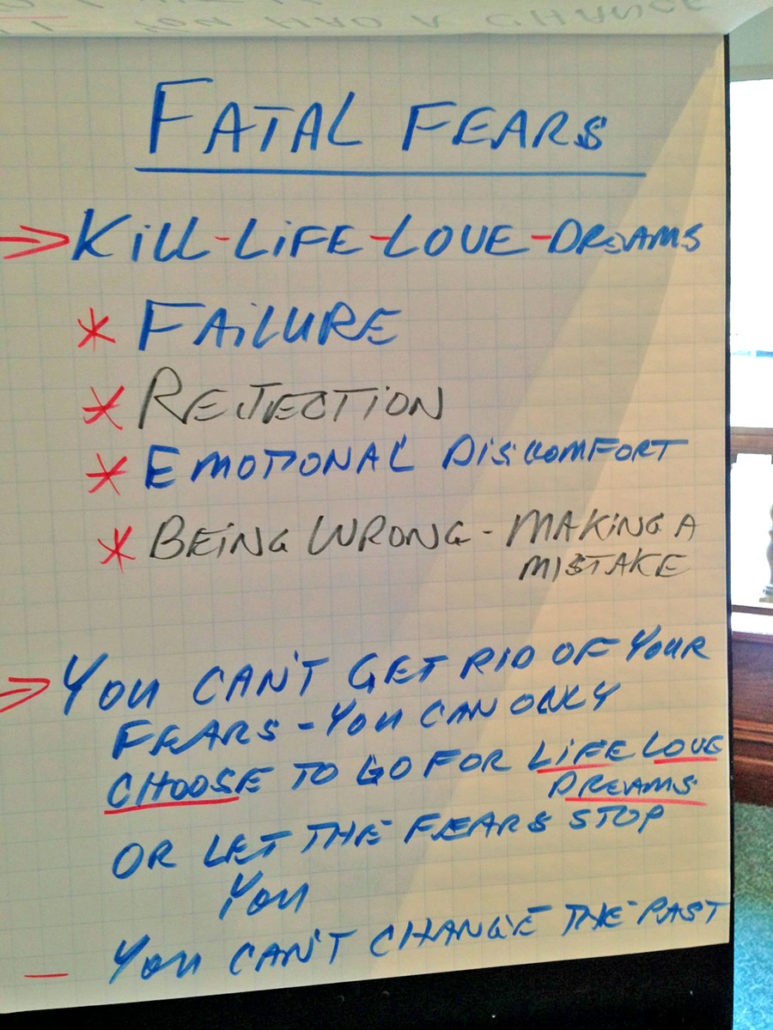 YOU HAD A CHANCE
FATAL FEARS
⇒ KiLL-LiFE-LOVE-DREAMS
* FAiLURE
* REJECTION
* EMOTIONAL DISCOMFORT
* BEiNG WRONG - MAKiNG A
MISTAKE
⇒ YOU CAN'T GET RID OF YOUR
FEARS - YOU CAN ONLY
CHOOSE TO GO FOR LiFE LOVE
DREAMS
OR LET THE FEARS STOP
YOU
- YOU CAN'T CHANGE THE PAST